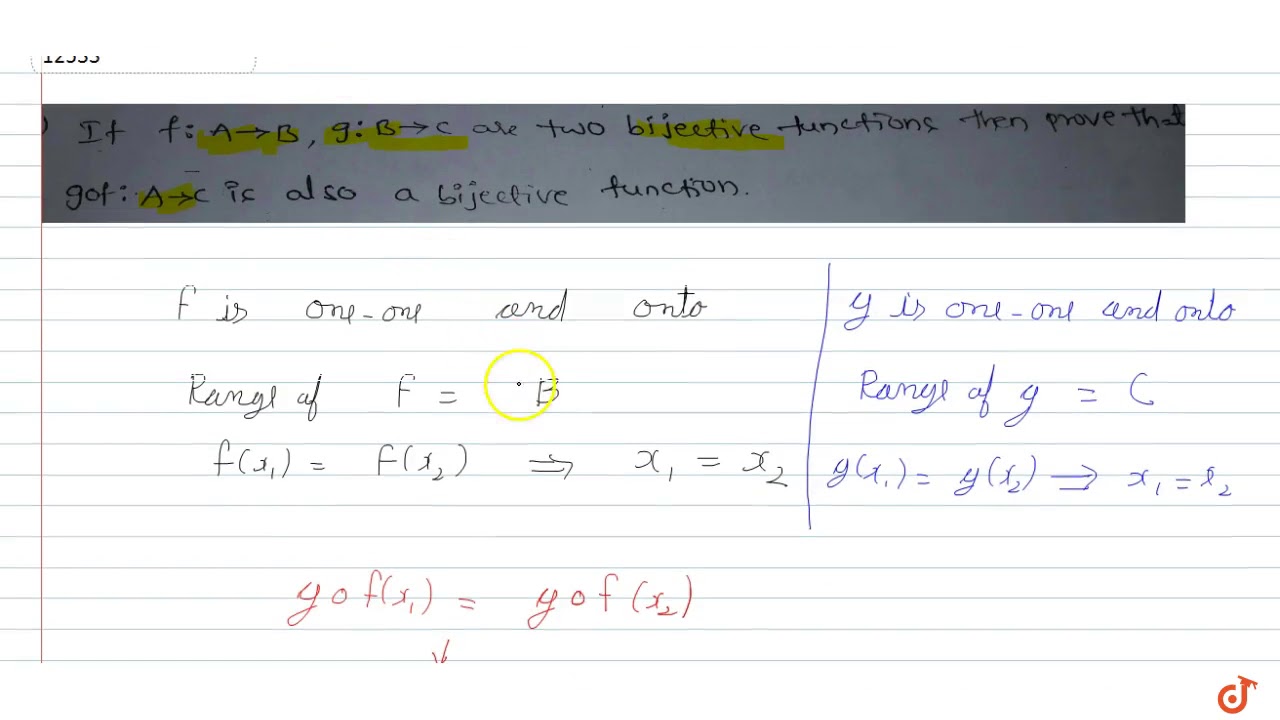 12533
) If f: A→B, g: B→C are two bijective functions then prove that
gof: A→C is also a bijective function.
f is one-one and onto
Range of f = B
f(x₁) = f(x₂) ⇒ x₁ = x₂
g is one-one and onto
Range of g = C
g(x₁) = g(x₂) ⇒ x₁ = x₂
gof(x₁) = gof(x₂)